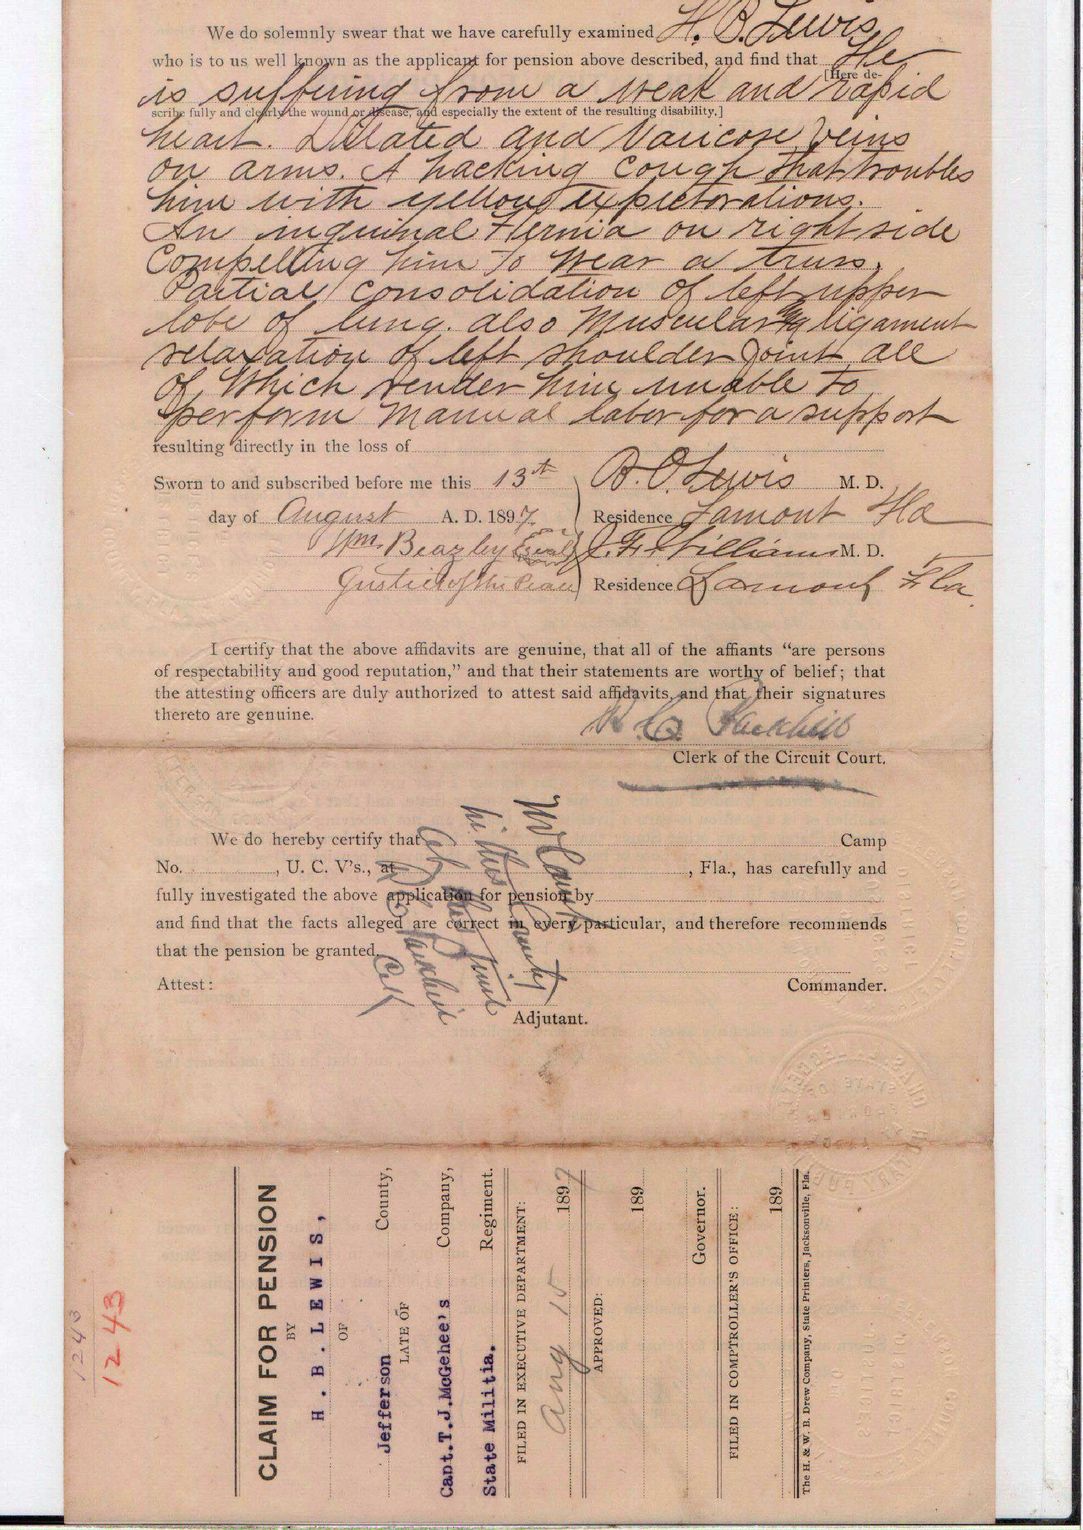 We do solemnly swear that we have carefully examined H. B. Lewis
who is to us well known as the applicant for pension above described, and find that He
[Here de-
is suffering from a weak and rapid
scribe fully and clearly the wound or disease, and especially the extent of the resulting disability.]
heart. Dilated and Varicose veins
on arms. A hacking Cough that troubles
him with yellow expectorations.
An inguinal Hernia on right side
Compelling him to wear a truss.
Partial consolidation of left upper
lobe of lung. also Muscular & ligament
relaxation of left shoulder joint, all
of Which render him unable to
perform manual labor for a support
resulting directly in the loss of
Sworn to and subscribed before me this 13th
day of August A. D. 1897.
Wm. Beazley Seal
Justice of the Peace
B. O. Lewis M. D.
Residence Lamont Fla
J. F. Williams M. D.
Residence Lamont Fla.
I certify that the above affidavits are genuine, that all of the affiants "are persons
of respectability and good reputation," and that their statements are worthy of belief; that
the attesting officers are duly authorized to attest said affidavits, and that their signatures
thereto are genuine.
Clerk of the Circuit Court.
We do hereby certify that Camp
No. , U. C. V's., at , Fla., has carefully and
fully investigated the above application for pension by
and find that the facts alleged are correct in every particular, and therefore recommends
that the pension be granted.
Commander.
Attest:
Adjutant.
No Camp
in this County
at this time
Clk
CLAIM FOR PENSION
BY
H. B. LEWIS,
OF
Jefferson County,
LATE OF
Capt. T. J. McGehee's Company,
State Militia. Regiment.
FILED IN EXECUTIVE DEPARTMENT:
Aug 15 1897
APPROVED:
189
Governor.
FILED IN COMPTROLLER'S OFFICE:
189
The H. & W. B. Drew Company, State Printers, Jacksonville, Fla.
1243
1243